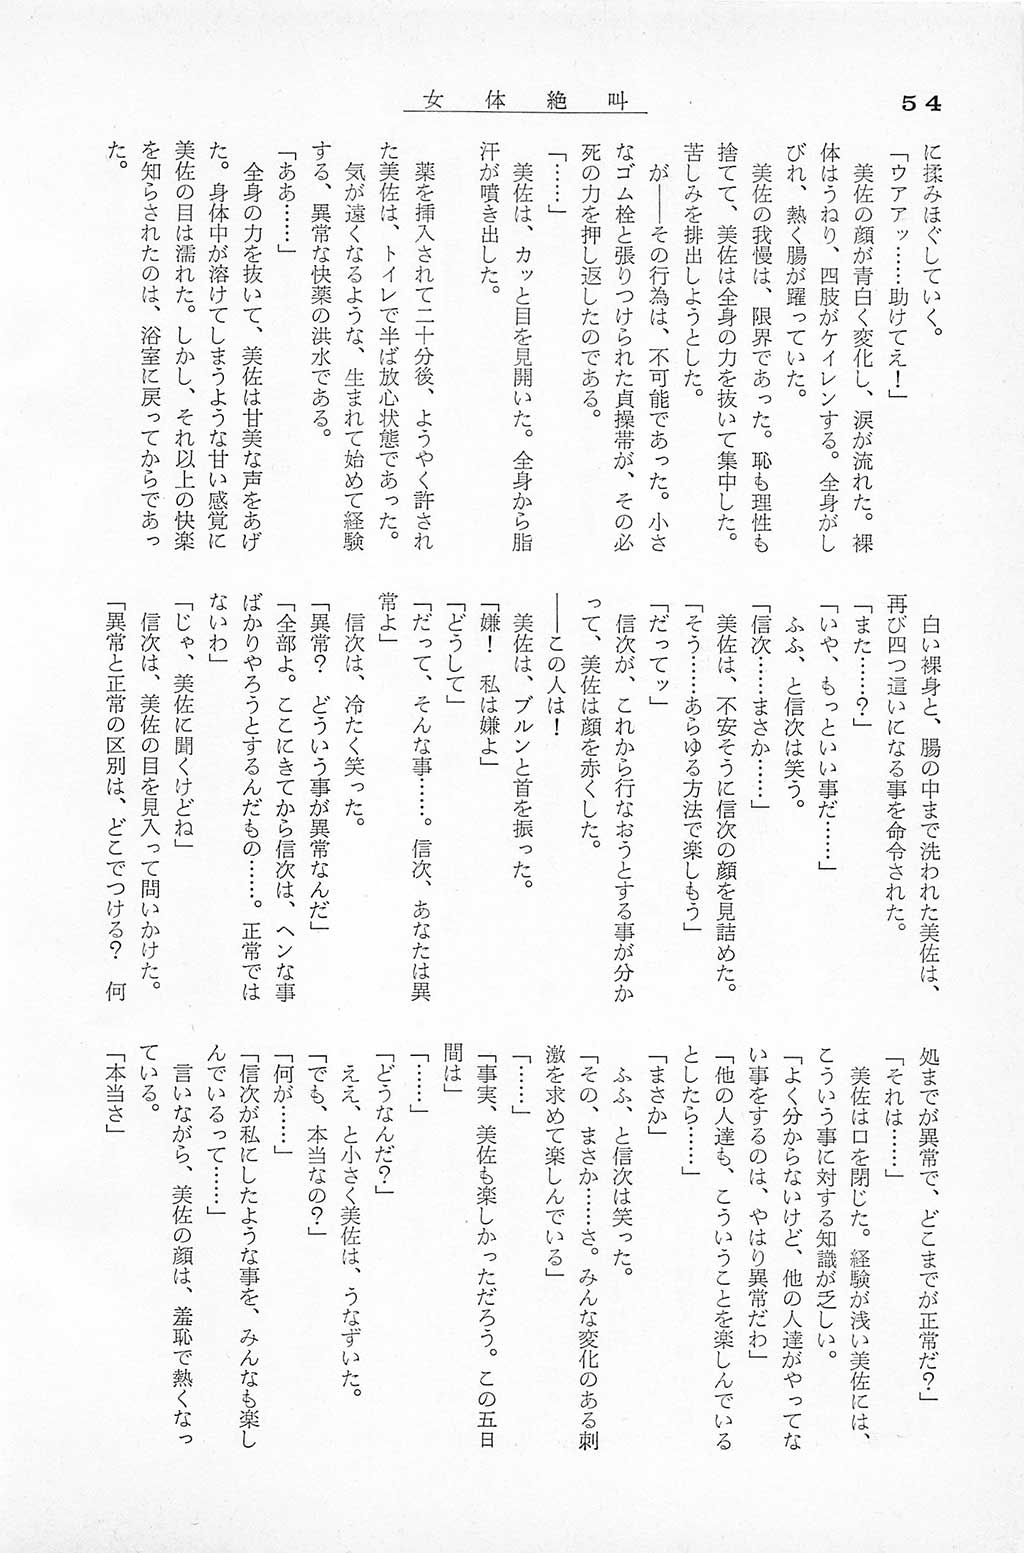 54
女体絶叫
に揉みほぐしていく。
「ウアアッ……助けてえ！」
美佐の顔が青白く変化し、涙が流れた。裸
体はうねり、四肢がケイレンする。全身がし
びれ、熱く腸が躍っていた。
美佐の我慢は、限界であった。恥も理性も
捨てて、美佐は全身の力を抜いて集中した。
苦しみを排出しようとした。
が――その行為は、不可能であった。小さ
なゴム栓と張りつけられた貞操帯が、その必
死の力を押し返したのである。
「……」
美佐は、カッと目を見開いた。全身から脂
汗が噴き出した。
薬を挿入されて二十分後、ようやく許され
た美佐は、トイレで半ば放心状態であった。
気が遠くなるような、生まれて始めて経験
する、異常な快薬の洪水である。
「ああ……」
全身の力を抜いて、美佐は甘美な声をあげ
た。身体中が溶けてしまうような甘い感覚に
美佐の目は濡れた。しかし、それ以上の快楽
を知らされたのは、浴室に戻ってからであっ
た。
白い裸身と、腸の中まで洗われた美佐は、
再び四つ這いになる事を命令された。
「また……？」
「いや、もっといい事だ……」
ふふ、と信次は笑う。
「信次……まさか……」
美佐は、不安そうに信次の顔を見詰めた。
「そう……あらゆる方法で楽しもう」
「だってッ」
信次が、これから行なおうとする事が分か
って、美佐は顔を赤くした。
――この人は！
美佐は、ブルンと首を振った。
「嫌！　私は嫌よ」
「どうして」
「だって、そんな事……。信次、あなたは異
常よ」
信次は、冷たく笑った。
「異常？　どういう事が異常なんだ」
「全部よ。ここにきてから信次は、ヘンな事
ばかりやろうとするんだもの……。正常では
ないわ」
「じゃ、美佐に聞くけどね」
信次は、美佐の目を見入って問いかけた。
「異常と正常の区別は、どこでつける？　何
処までが異常で、どこまでが正常だ？」
「それは……」
美佐は口を閉じた。経験が浅い美佐には、
こういう事に対する知識が乏しい。
「よく分からないけど、他の人達がやってな
い事をするのは、やはり異常だわ」
「他の人達も、こういうことを楽しんでいる
としたら……」
「まさか」
ふふ、と信次は笑った。
「その、まさか……さ。みんな変化のある刺
激を求めて楽しんでいる」
「……」
「事実、美佐も楽しかっただろう。この五日
間は」
「……」
「どうなんだ？」
ええ、と小さく美佐は、うなずいた。
「でも、本当なの？」
「何が……」
「信次が私にしたような事を、みんなも楽し
んでいるって……」
言いながら、美佐の顔は、羞恥で熱くなっ
ている。
「本当さ」